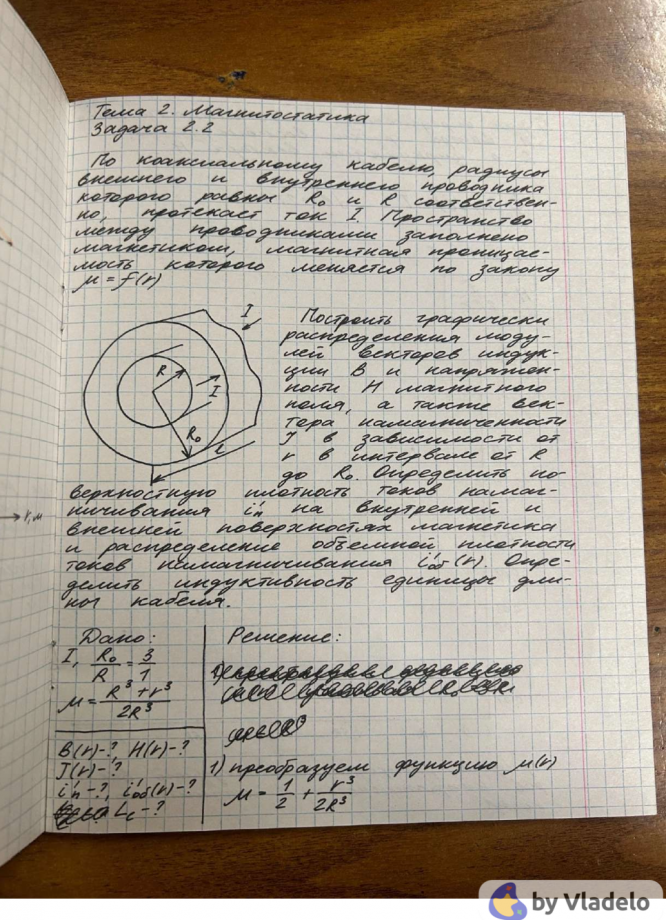 Тема 2. Магнитостатика
Задача 2.2
По коаксиальному кабелю, радиусы
внешнего и внутреннего проводника
которого равны R₀ и R соответствен-
но, протекает ток I. Пространство
между проводниками заполнено
магнетиком, магнитная проницае-
мость которого меняется по закону
μ = f(r)
I
R
I
R₀
l
Построить графически
распределения моду-
лей векторов индук-
ции B и напряжен-
ности H магнитного
поля, а также век-
тора намагниченности
J в зависимости от
r в интервале от R
до R₀. Определить по-
верхностную плотность токов намаг-
ничивания i'ₙ на внутренней и
внешней поверхностях магнетика
и распределение объемной плотности
токов намагничивания i'об(r). Опре-
делить индуктивность единицы дли-
ны кабеля.
r, м
Дано:
I, R₀/R = 3/1
μ = (R³ + r³)/2R³
B(r)-? H(r)-?
J(r)-?
i'ₙ-?, i'об(r)-?
L꜀-?
Решение:
1) преобразуем функцию μ(r)
μ = 1/2 + r³/2R³
by Vladelo